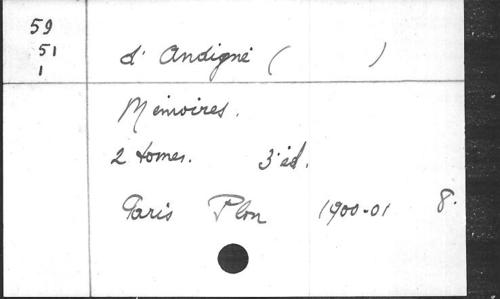 59
51
1
d'Andigné (          )
Mémoires.
2 tomes. 3e éd.
Paris Plon 1900-01 8.